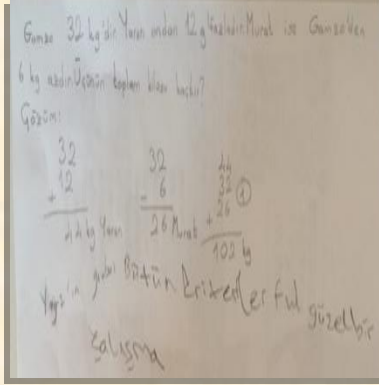 Gamze 32 kg'dir. Yaren ondan 12 g fazladır. Murat ise Gamze'den
6 kg azdır. Üçünün toplam kilosu kaçtır?
Çözüm:
32
+ 12
44 kg Yaren
32
- 6
26 Murat
44
32
+ 26
102 kg
Bütün kriterler ful güzel bir
çalışma